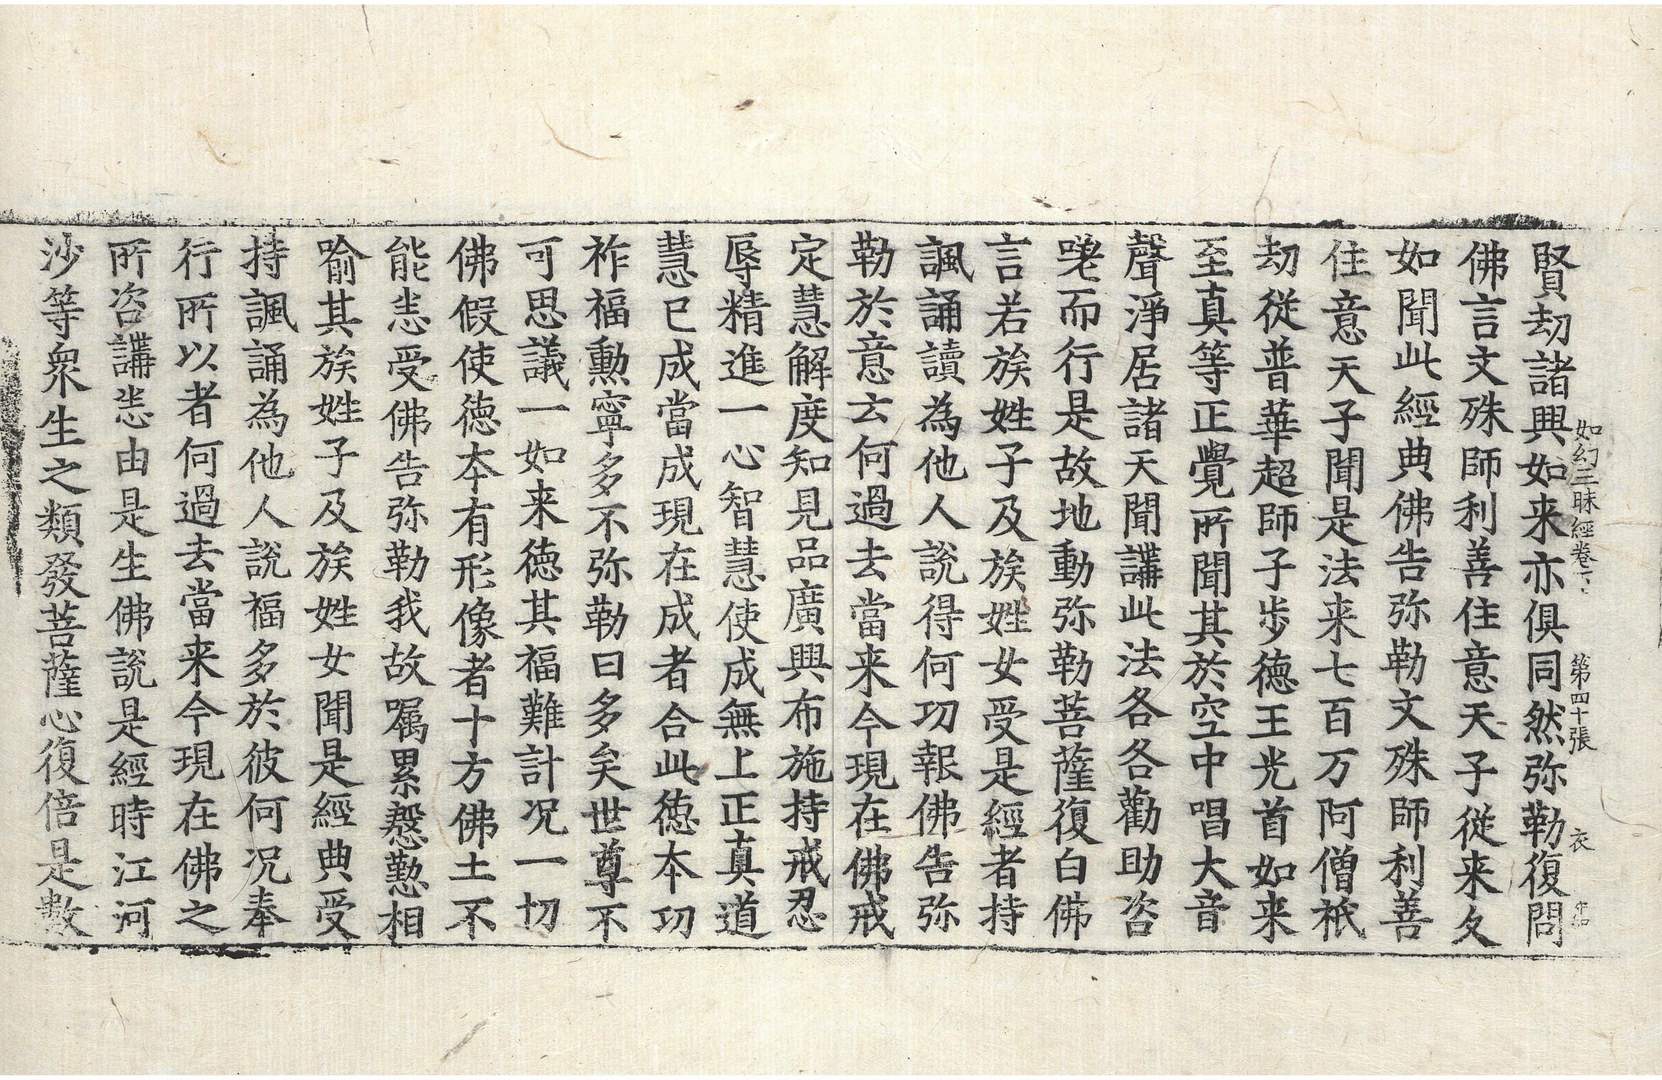 如幻三昧經卷下 第四十張 衣
賢劫諸興如来亦俱同然弥勒復問
佛言文殊師利善住意天子從来久
如聞此經典佛告弥勒文殊師利善
住意天子聞是法来七百万阿僧祇
劫從普華超師子步德王光首如来
至真等正覺所聞其於空中唱大音
聲淨居諸天聞講此法各各勸助咨
嗟而行是故地動弥勒菩薩復白佛
言若族姓子及族姓女受是經者持
諷誦讀為他人說得何功報佛告弥
勒於意云何過去當来今現在佛戒
定慧解度知見品廣興布施持戒忍
辱精進一心智慧使成無上正真道
慧已成當成現在成者合此德本功
祚福勳寧多不弥勒曰多矣世尊不
可思議一如来德其福難計况一切
佛假使德本有形像者十方佛土不
能悉受佛告弥勒我故嘱累慇懃相
喻其族姓子及族姓女聞是經典受
持諷誦為他人說福多於彼何况奉
行所以者何過去當来今現在佛之
所咨講悉由是生佛說是經時江河
沙等衆生之類發菩薩心復倍是數